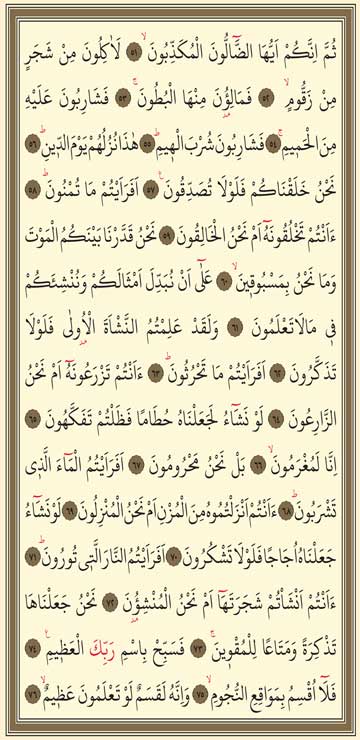 ثُمَّ اِنَّكُمْ اَيُّهَا الضَّٓالُّونَ الْمُكَذِّبُونَۙ ﴿٥١﴾ لَاٰكِلُونَ مِنْ شَجَرٍ
مِنْ زَقُّومٍۙ ﴿٥٢﴾ فَمَالِؤُ۫نَ مِنْهَا الْبُطُونَۚ ﴿٥٣﴾ فَشَارِبُونَ عَلَيْهِ
مِنَ الْحَم۪يمِۚ ﴿٥٤﴾ فَشَارِبُونَ شُرْبَ الْه۪يمِۜ ﴿٥٥﴾ هٰذَا نُزُلُهُمْ يَوْمَ الدّ۪ينِۜ ﴿٥٦﴾
نَحْنُ خَلَقْنَاكُمْ فَلَوْلَا تُصَدِّقُونَ ﴿٥٧﴾ اَفَرَاَيْتُمْ مَا تُمْنُونَۜ ﴿٥٨﴾
ءَاَنْتُمْ تَخْلُقُونَهُٓ اَمْ نَحْنُ الْخَالِقُونَ ﴿٥٩﴾ نَحْنُ قَدَّرْنَا بَيْنَكُمُ الْمَوْتَ
وَمَا نَحْنُ بِمَسْبُوق۪ينَۙ ﴿٦٠﴾ عَلٰٓى اَنْ نُبَدِّلَ اَمْثَالَكُمْ وَنُنْشِئَكُمْ
ف۪ي مَا لَا تَعْلَمُونَ ﴿٦١﴾ وَلَقَدْ عَلِمْتُمُ النَّشْاَةَ الْاُو۫لٰى فَلَوْلَا
تَذَكَّرُونَ ﴿٦٢﴾ اَفَرَاَيْتُمْ مَا تَحْرُثُونَۜ ﴿٦٣﴾ ءَاَنْتُمْ تَزْرَعُونَهُٓ اَمْ نَحْنُ
الزَّارِعُونَ ﴿٦٤﴾ لَوْ نَشَٓاءُ لَجَعَلْنَاهُ حُطَامًا فَظَلْتُمْ تَفَكَّهُونَ ﴿٦٥﴾
اِنَّا لَمُغْرَمُونَۙ ﴿٦٦﴾ بَلْ نَحْنُ مَحْرُومُونَ ﴿٦٧﴾ اَفَرَاَيْتُمُ الْمَٓاءَ الَّذ۪ي
تَشْرَبُونَۜ ﴿٦٨﴾ ءَاَنْتُمْ اَنْزَلْتُمُوهُ مِنَ الْمُزْنِ اَمْ نَحْنُ الْمُنْزِلُونَ ﴿٦٩﴾ لَوْ نَشَٓاءُ
جَعَلْنَاهُ اُجَاجًا فَلَوْلَا تَشْكُرُونَ ﴿٧٠﴾ اَفَرَاَيْتُمُ النَّارَ الَّت۪ي تُورُونَۜ ﴿٧١﴾
ءَاَنْتُمْ اَنْشَأْتُمْ شَجَرَتَهَٓا اَمْ نَحْنُ الْمُنْشِؤُ۫نَ ﴿٧٢﴾ نَحْنُ جَعَلْنَاهَا
تَذْكِرَةً وَمَتَاعًا لِلْمُقْو۪ينَۚ ﴿٧٣﴾ فَسَبِّحْ بِاسْمِ رَبِّكَ الْعَظ۪يمِ ﴿٧٤﴾
فَلَٓا اُقْسِمُ بِمَوَاقِعِ النُّجُومِۙ ﴿٧٥﴾ وَاِنَّهُ لَقَسَمٌ لَوْ تَعْلَمُونَ عَظ۪يمٌۙ ﴿٧٦﴾